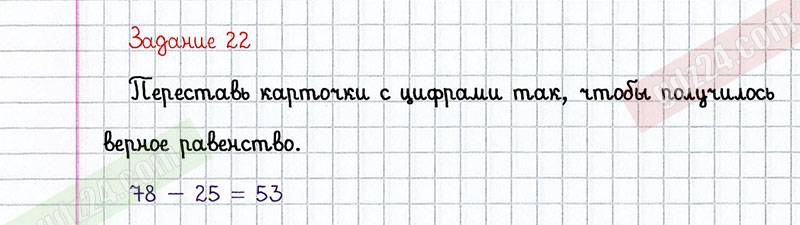 Задание 22
Переставь карточки с цифрами так, чтобы получилось
верное равенство.
78 - 25 = 53
gdz24.com
gdz24.com